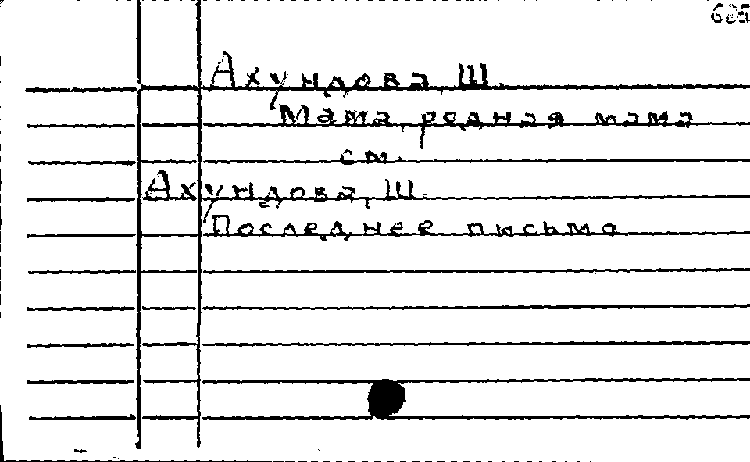 Ахундова, Ш.
Мама, родная мама
см.
Ахундова, Ш.
Последнее письмо